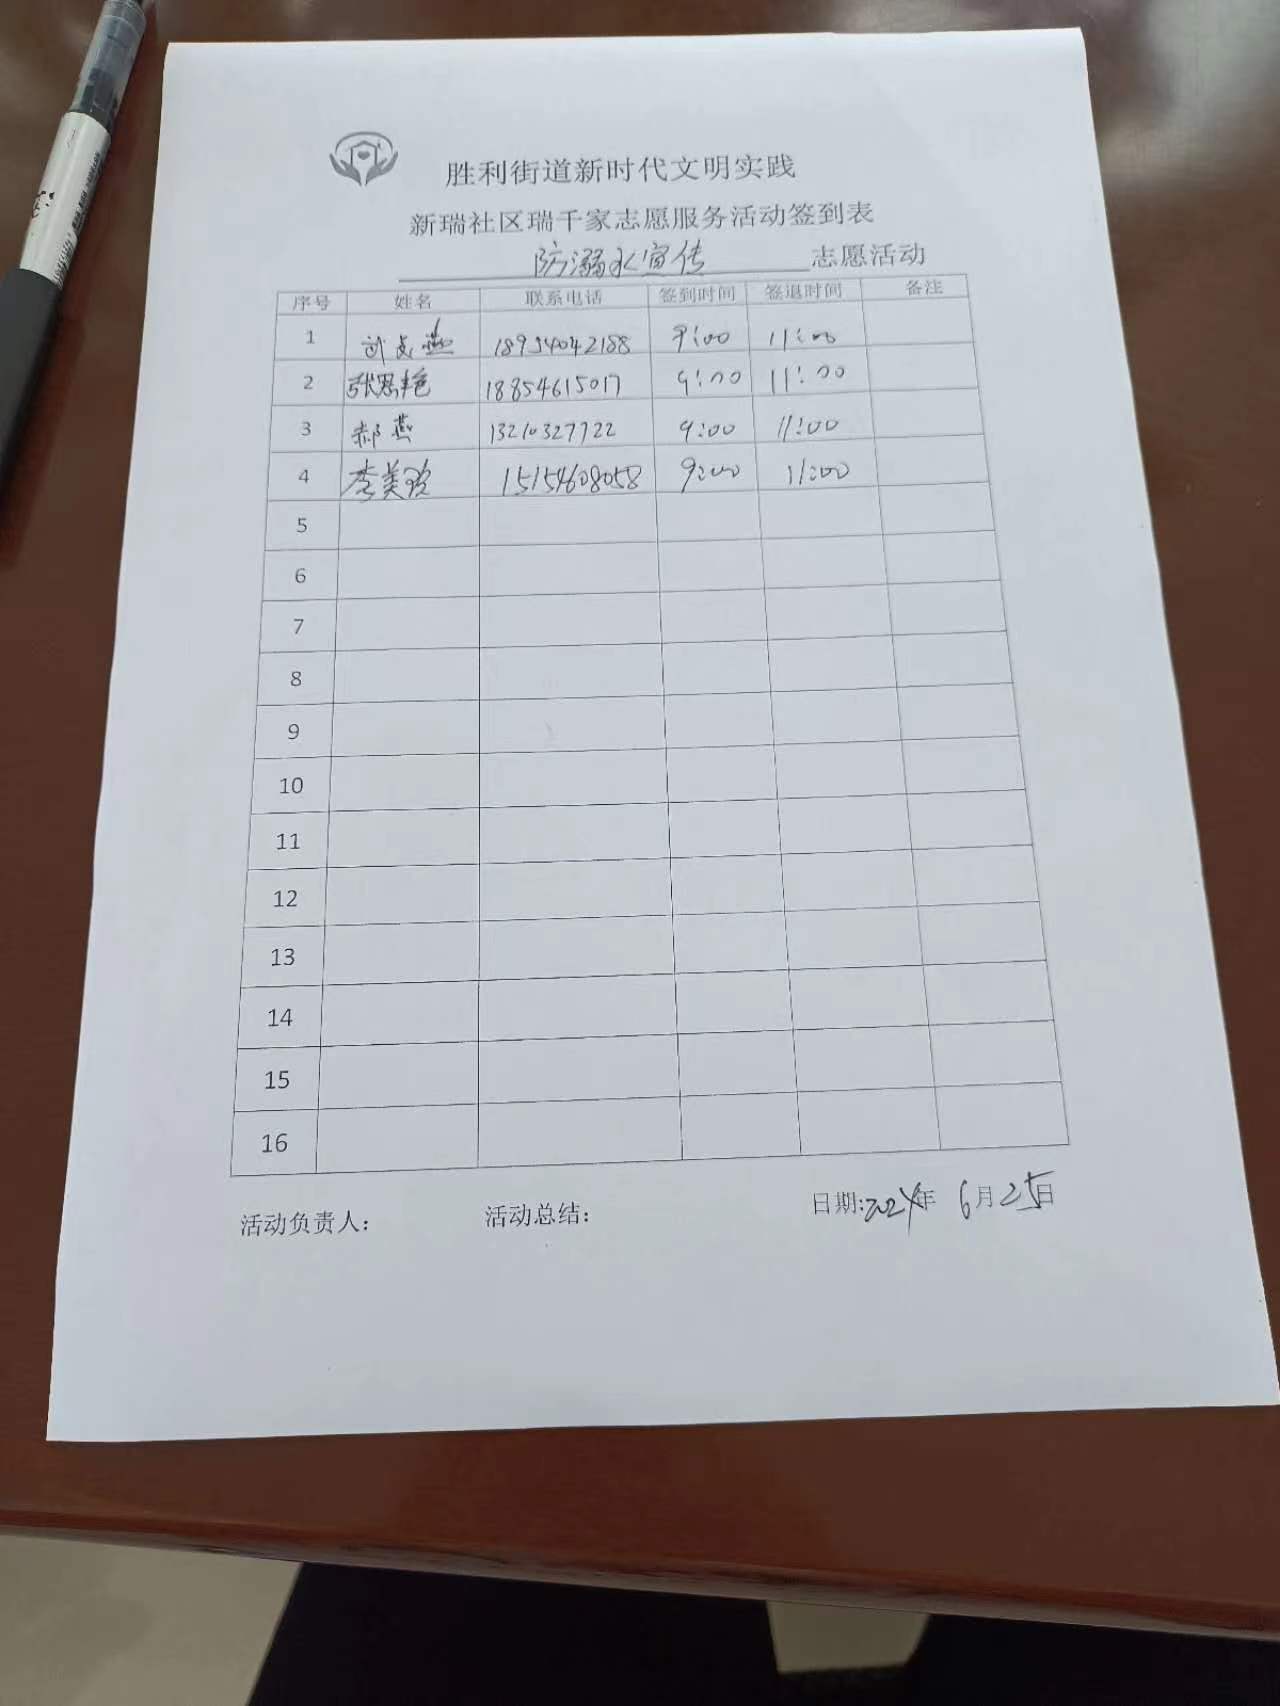 胜利街道新时代文明实践
新瑞社区瑞千家志愿服务活动签到表
防溺水宣传 志愿活动
序号 姓名 联系电话 签到时间 签退时间 备注
1 18954042188 9:00 11:00
2 张思艳 18854615017 9:00 11:00
3 郝燕 13210327722 9:00 11:00
4 李美玲 15154608058 9:00 11:00
5
6
7
8
9
10
11
12
13
14
15
16
活动负责人: 活动总结: 日期:2024年 6月25日